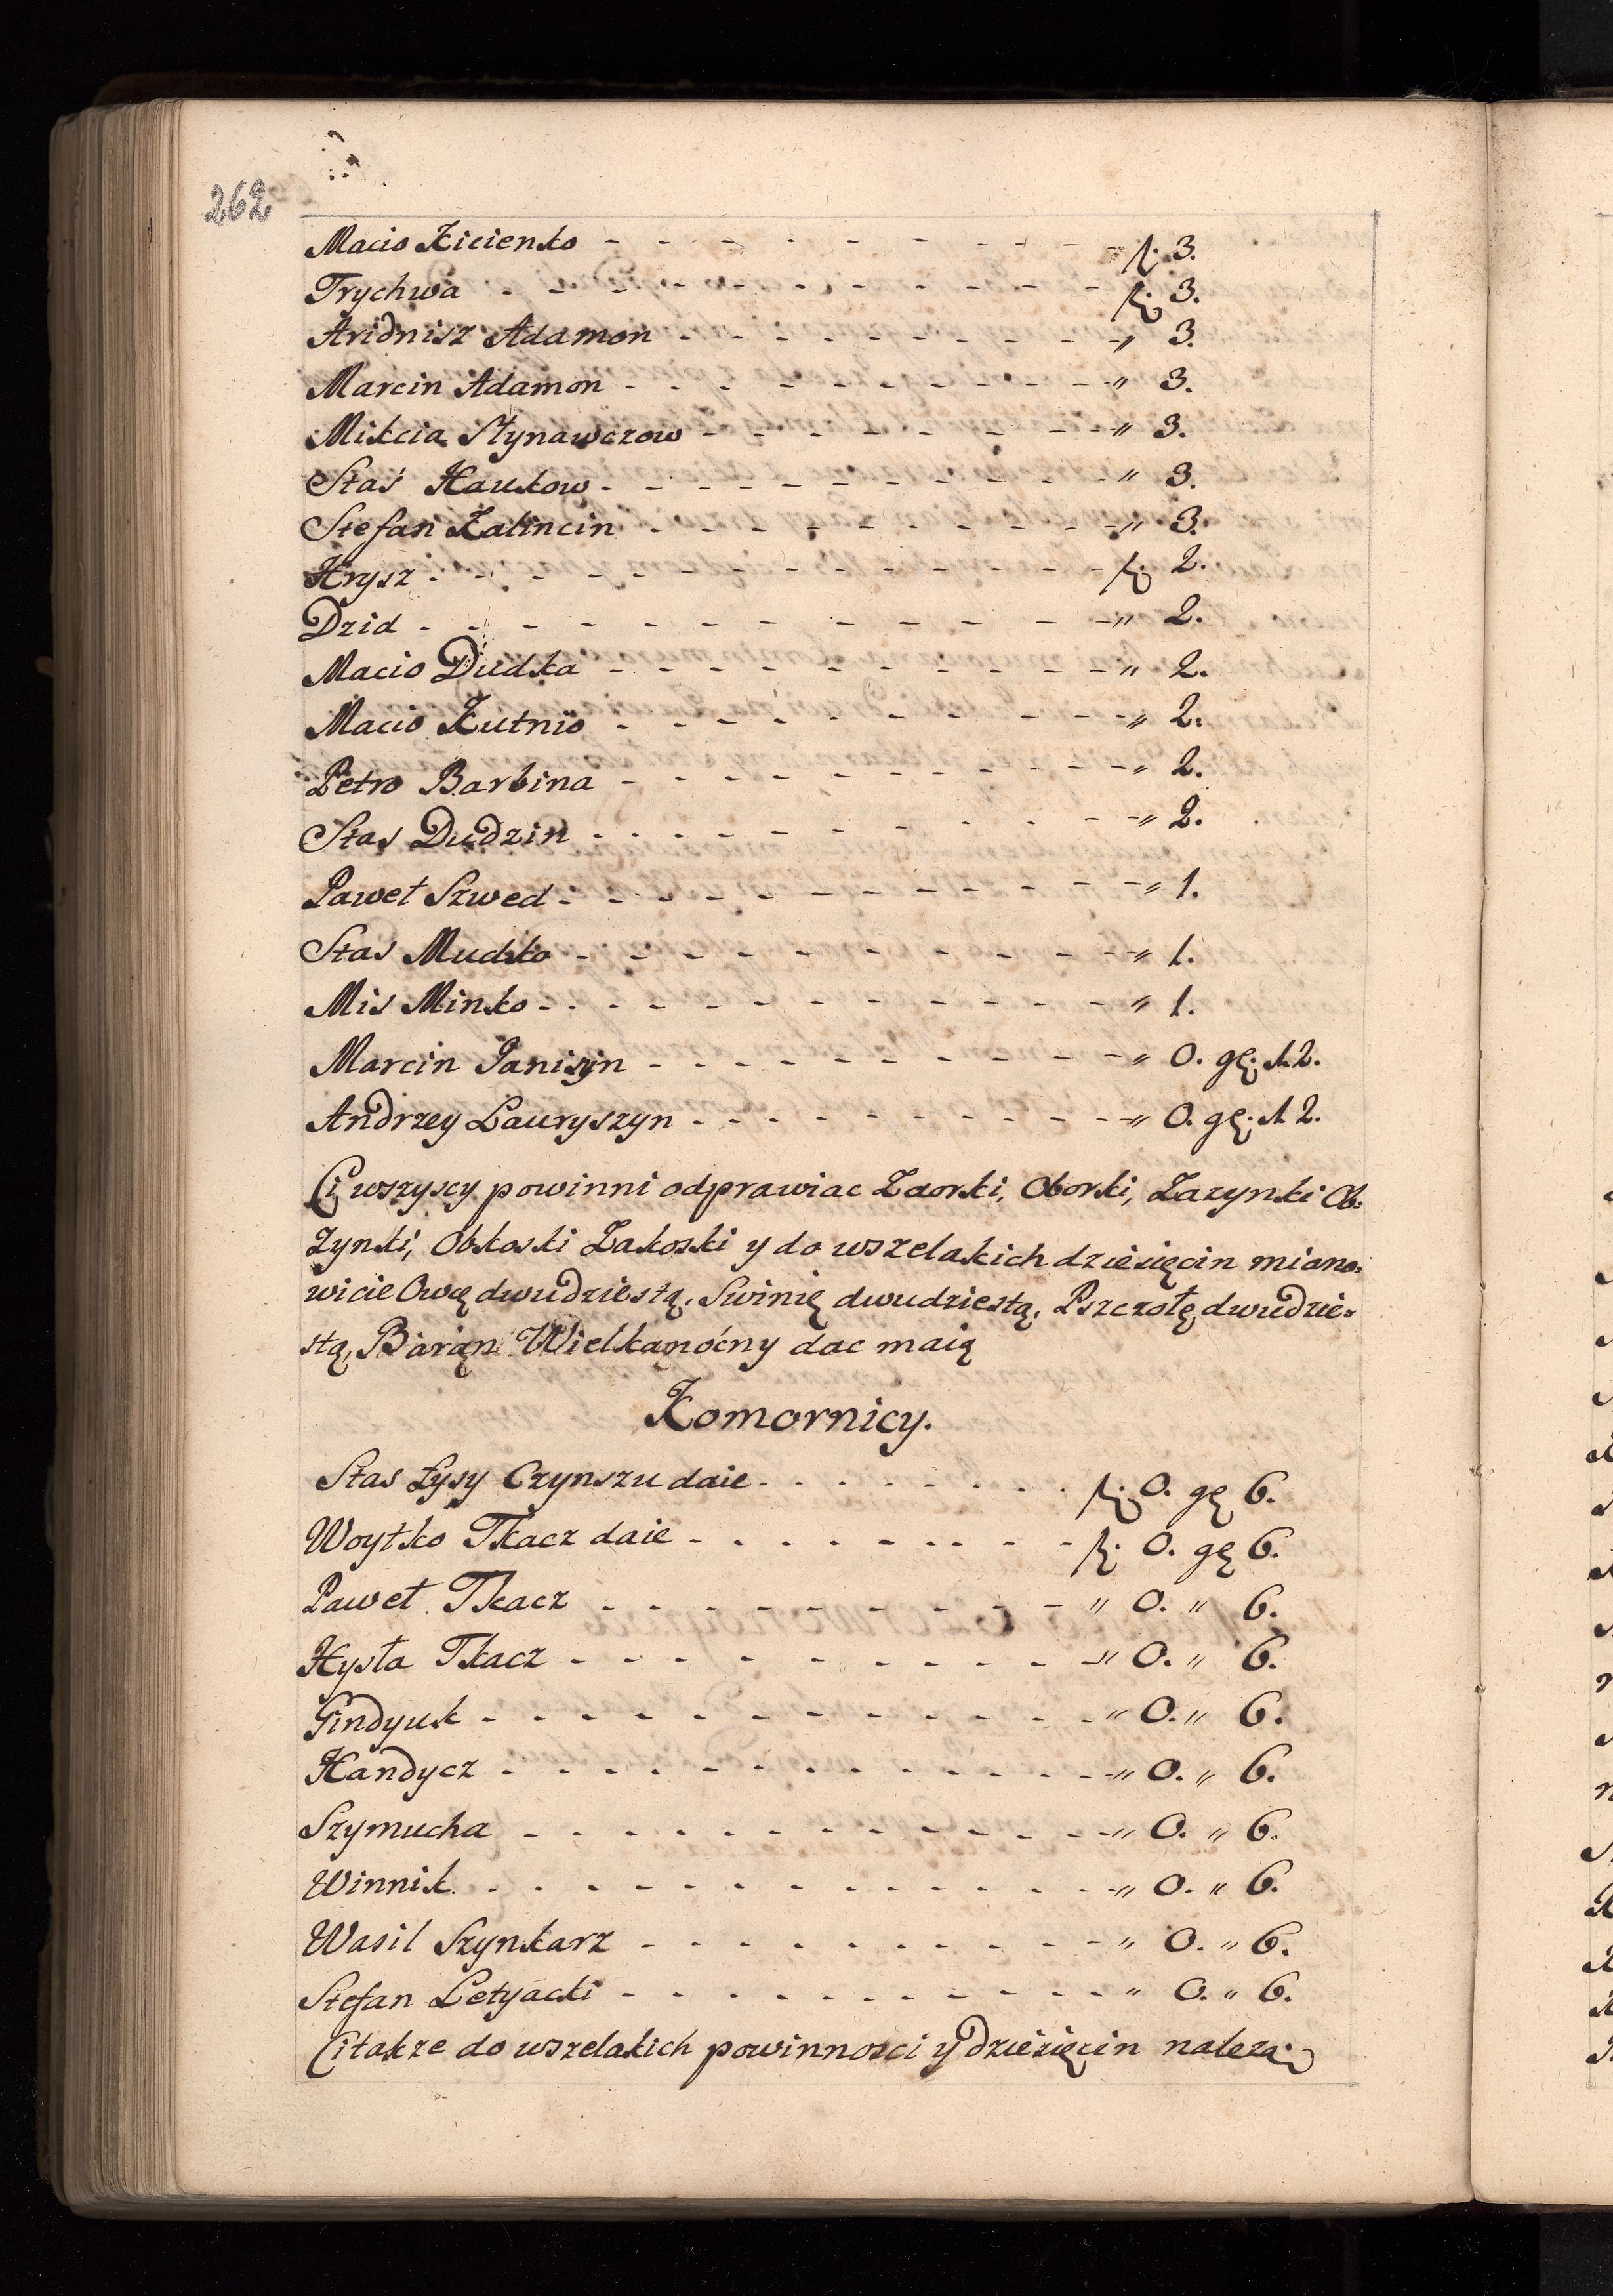 262
Macio Kicienko - - - - - - - - - - fl: 3.
Trychwa - - - - - - - - - - - - fl: 3.
Aridnisz Adamon - - - - - - - - - - " 3.
Marcin Adamon - - - - - - - - - - " 3.
Mikcia Stynawczow - - - - - - - - - " 3.
Staś Haukow - - - - - - - - - - - " 3.
Stefan Kalincin - - - - - - - - - - " 3.
Hrysz - - - - - - - - - - - - - fl: 2.
Dzid - - - - - - - - - - - - - " 2.
Macio Dudka - - - - - - - - - - " 2.
Macio Kutnio - - - - - - - - - - " 2.
Petro Barbina - - - - - - - - - - " 2.
Stas Dudzin - - - - - - - - - - " 2.
Paweł Szwed - - - - - - - - - - " 1.
Stas Mudko - - - - - - - - - - " 1.
Mis Minko - - - - - - - - - - - " 1.
Marcin Janiszyn - - - - - - - - - " 0. gę: 12.
Andrzey Lauryszyn - - - - - - - - " 0. gę: 12.
Ci wszyscy powinni odprawiac Zaorki, Oborki, Zazynki Ob:
zynki, Obkoski Zakoski y do wszelakich dziesięcin miano:
wicie Owcę dwudziestą, Swinię dwudziestą, Pszczołę dwudzie:
stą, Baran Wielkanoćny dac maią
Komornicy.
Stas Łysy Czynszu daie - - - - - - - fl: 0. gę 6.
Woytko Tkacz daie - - - - - - - - fl: 0. gę 6.
Paweł Tkacz - - - - - - - - - - " 0. " 6.
Hysta Tkacz - - - - - - - - - - " 0. " 6.
Gindyuk - - - - - - - - - - - - " 0. " 6.
Handycz - - - - - - - - - - - - " 0. " 6.
Szymucha - - - - - - - - - - - " 0. " 6.
Winnik - - - - - - - - - - - - " 0. " 6.
Wasil Szynkarz - - - - - - - - - " 0. " 6.
Stefan Letyacki - - - - - - - - - " 0. " 6.
Ci takze do wszelakich powinnosci y dziesięcin nalezą